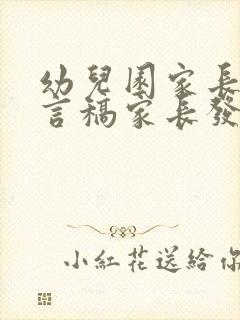 幼兒園家長
言稿家長發
小紅花送給你